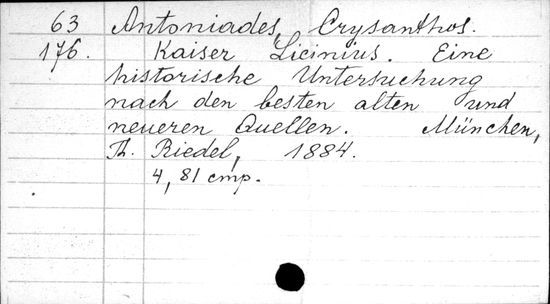 63 Antoniades, Crysanthos.
176. Kaiser Licinius. Eine
historische Untersuchung
nach den besten alten und
neueren Quellen. München,
Th. Riedel, 1884.
4, 81 cmp.